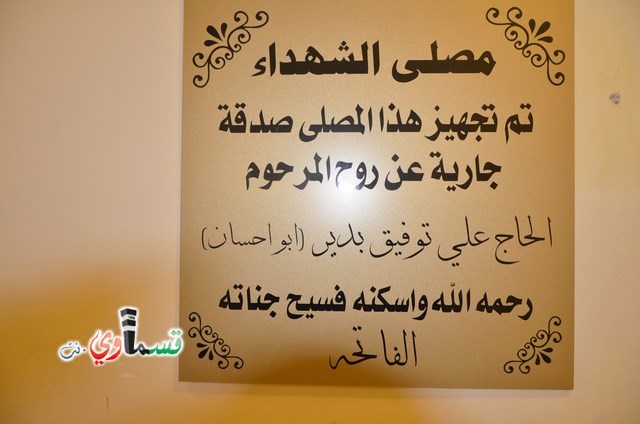 مصلى الشهداء
تم تجهيز هذا المصلى صدقة
جارية عن روح المرحوم
الحاج علي توفيق بدير (ابو احسان)
رحمه الله واسكنه فسيح جناته
الفاتحه
قسماوي.نت